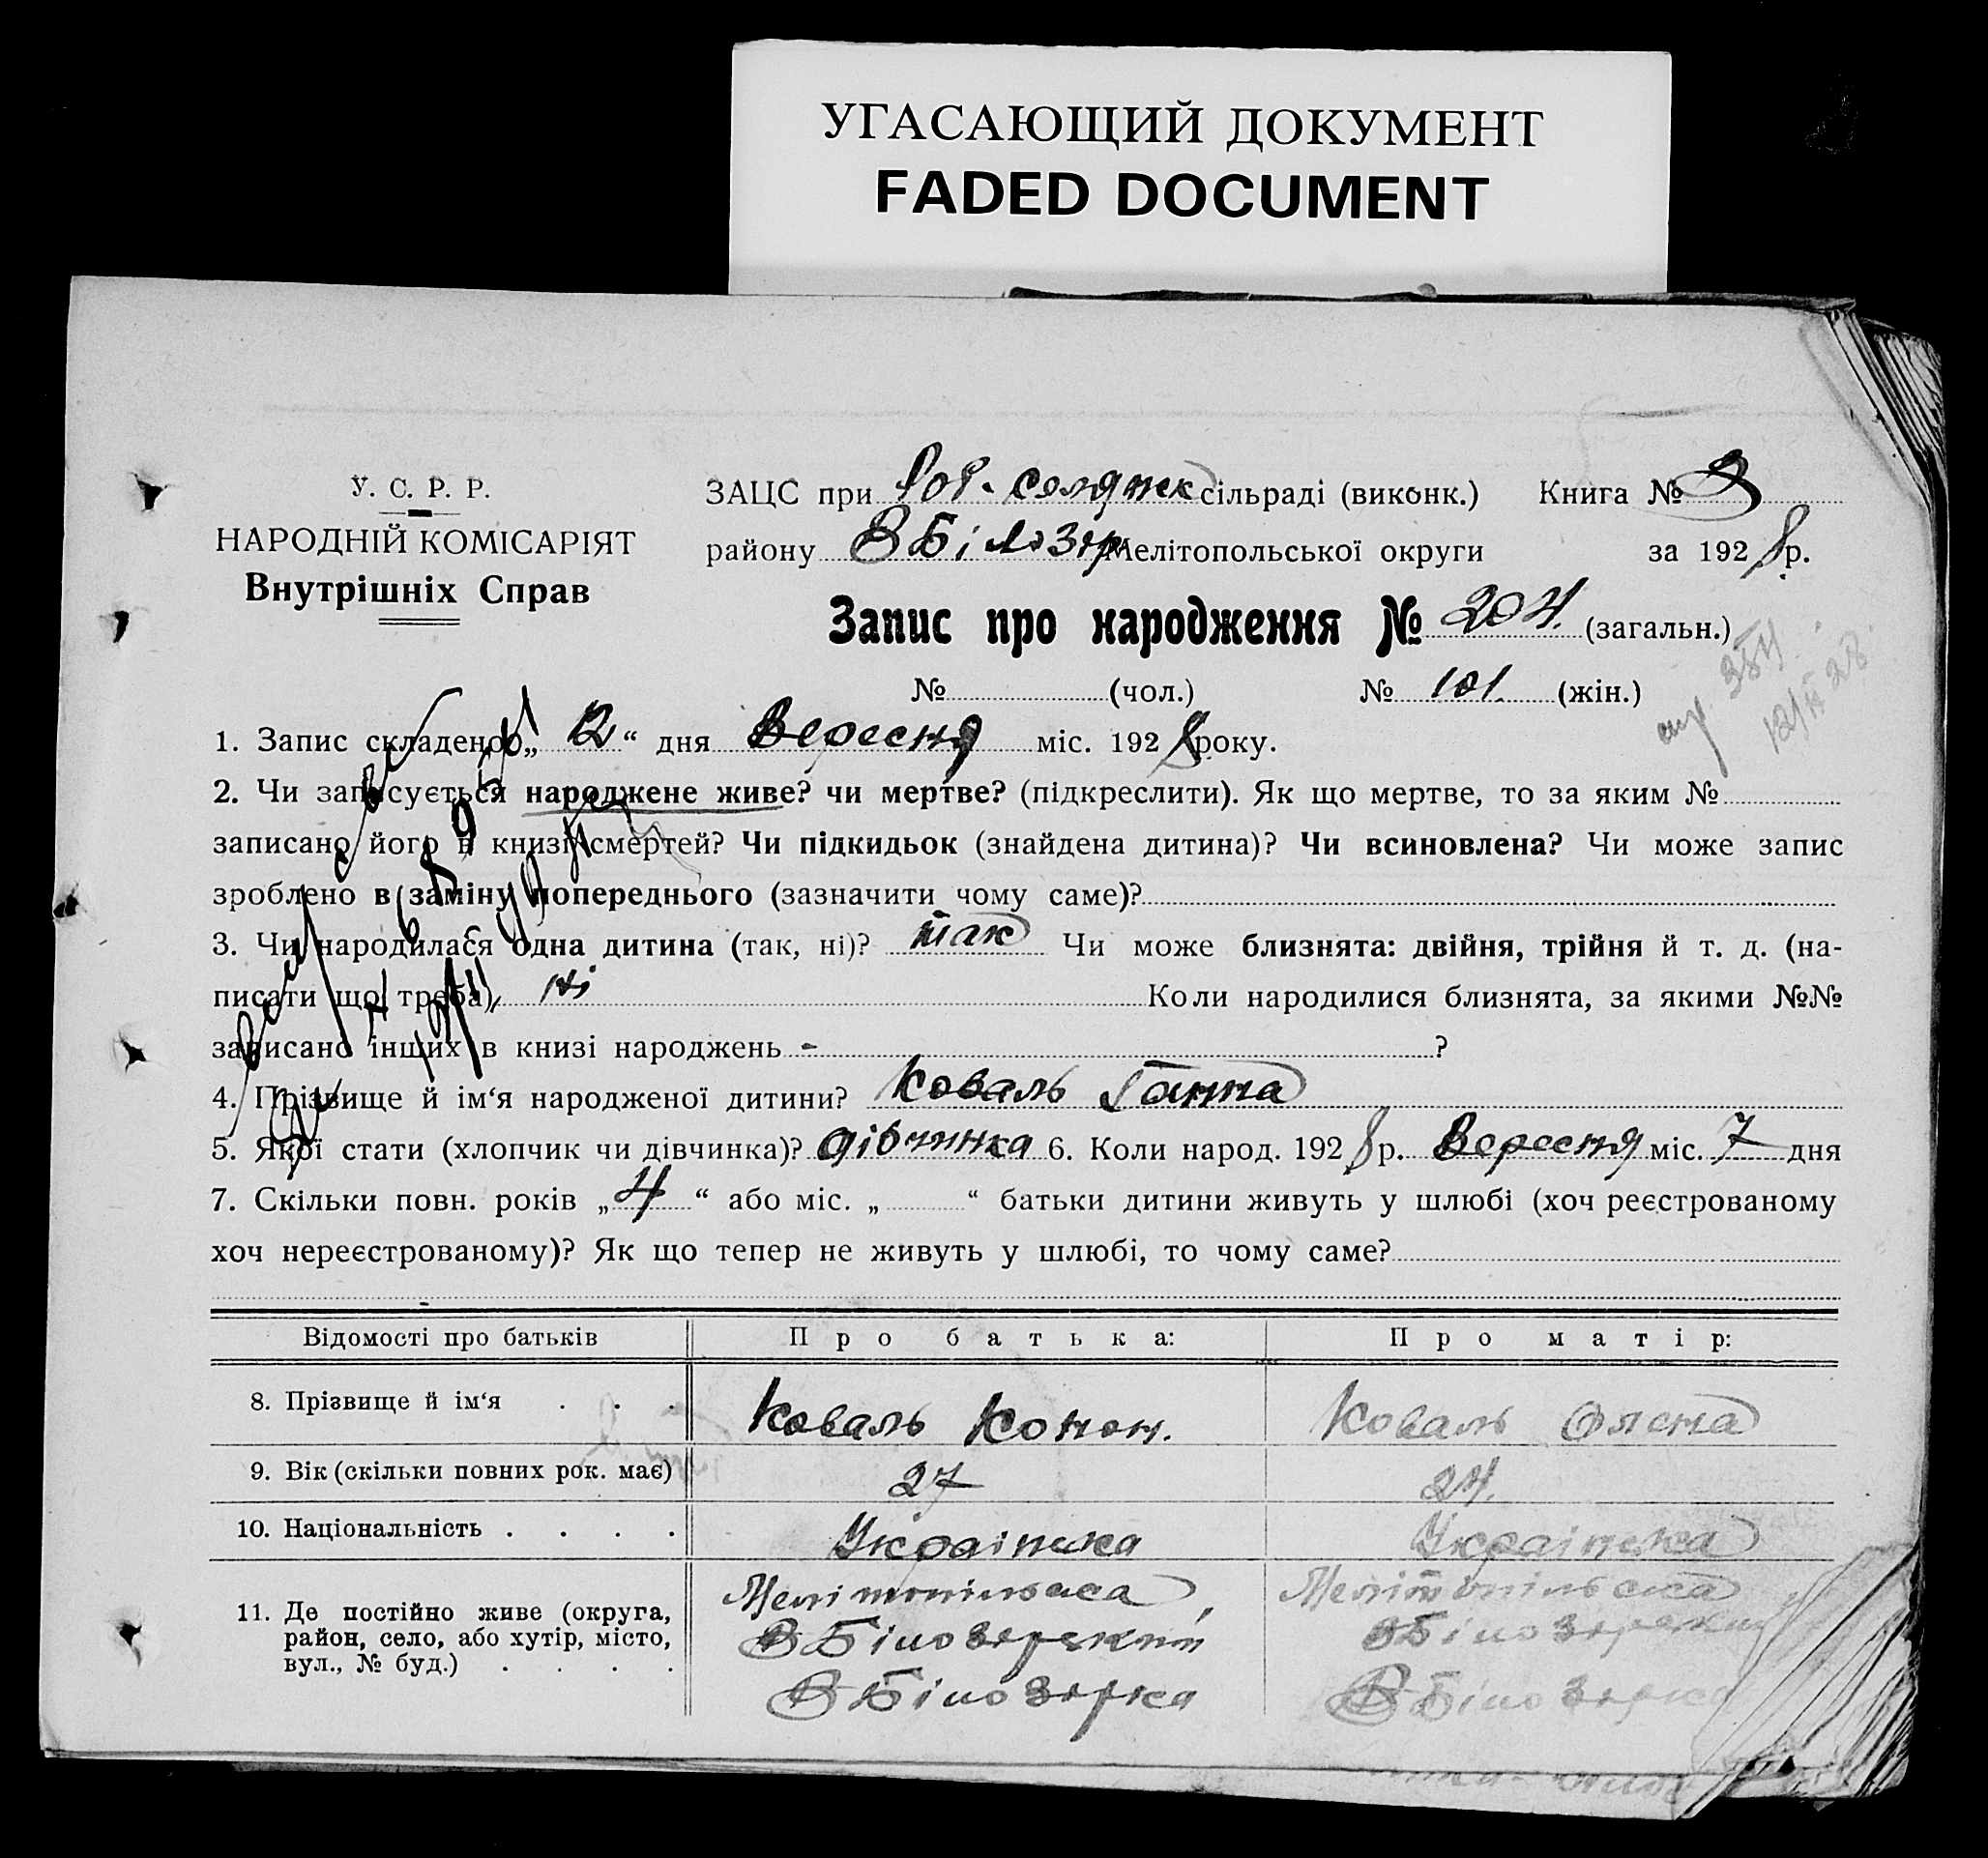 УГАСАЮЩИЙ ДОКУМЕНТ
FADED DOCUMENT
У. С. Р. Р.
НАРОДНІЙ КОМІСАРІЯТ
Внутрішніх Справ
ЗАЦС при сільраді (виконк.) Книга № 3
району ВБілозер Мелітопольської округи за 1928 р.
Запис про народження № 204. (загальн.)
№ (чол.) № 101. (жін.)
1. Запис складено „12“ дня Вересня міс. 1928 року.
2. Чи записується народжене живе? чи мертве? (підкреслити). Як що мертве, то за яким №
записано його в книзі смертей? Чи підкидьок (знайдена дитина)? Чи всиновлена? Чи може запис
зроблено в заміну попереднього (зазначити чому саме)?
3. Чи народилася одна дитина (так, ні)? так Чи може близнята: двійня, трійня й т. д. (на-
писати що треба) ні Коли народилися близнята, за якими №№
записано інших в книзі народжень - ?
4. Прізвище й ім‘я народженої дитини? Коваль Ганна
5. Якої стати (хлопчик чи дівчинка)? дівчинка 6. Коли народ. 1928 р. Вересня міс. 7 дня
7. Скільки повн. років „4“ або міс. „ “ батьки дитини живуть у шлюбі (хоч реєстрованому
хоч нереєстрованому)? Як що тепер не живуть у шлюбі, то чому саме?
Відомості про батьків Про батька: Про матір:
8. Прізвище й ім‘я . . . Коваль Конон. Коваль Олена
9. Вік (скільки повних рок. має) 27 24.
10. Національність . . . . Українська Українська
11. Де постійно живе (округа, район, село, або хутір, місто, вул., № буд.) . . . .
Мелітопільська, Мелітопільська
ВБілозерский ВБілозерский
ВБілозерка ВБілозерка